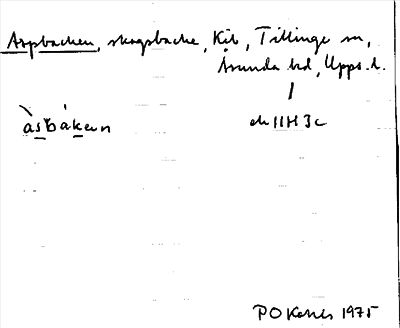 Aspbacken, skogsbacke, Kib, Tillinge sn,
Åsunda hd, Upps. l.
àsbákɐn
ek 11H 3c
P O 1975